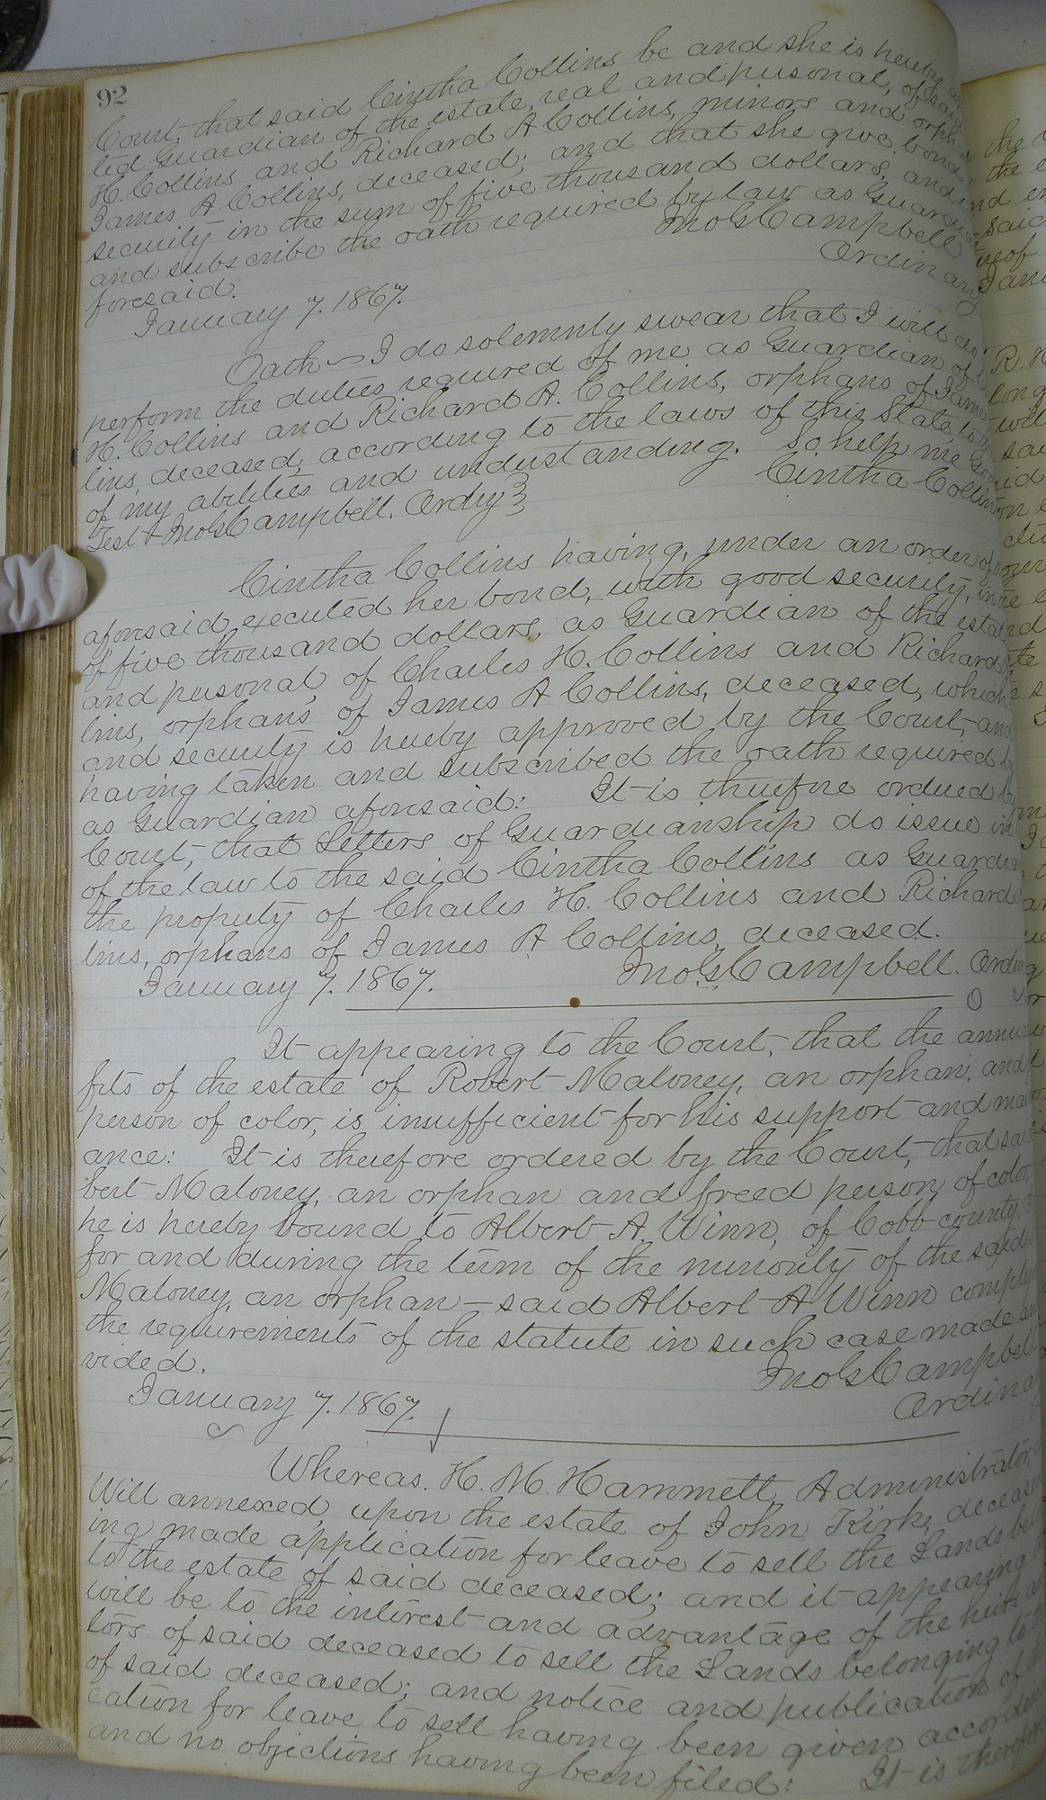 92
Court, that said Cintha Collins be and she is hereby
ted Guardian of the estate, real and personal, of
H. Collins and Richard A Collins, minors and orph
James A Collins, deceased; and that she give bond
security in the sum of five thousand dollars, and
and subscribe the oath required by law as Guardi
foresaid. Jno G Campbell
January 7. 1867. Ordinary
Oath — I do solemnly swear that I will
perform the duties required of me as Guardian of
H. Collins and Richard A. Collins, orphans of James
lins, deceased, according to the laws of this State, to
of my abilities and understanding. So help me God
Test Jno G Campbell. Ordry } Cintha Collins
Cintha Collins having, under an order of
aforesaid, executed her bond, with good security, in
of five thousand dollars, as Guardian of the estate
and personal, of Charles H. Collins and Richard
lins, orphans of James A Collins, deceased, which
and security is hereby approved by the Court, and
having taken and subscribed the oath required
as Guardian aforesaid: It is therefore ordered by
Court, that Letters of Guardianship do issue in
of the law to the said Cintha Collins as Guardia
the property of Charles H. Collins and Richard
lins, orphans of James A Collins, deceased.
January 7. 1867. Jno G Campbell. Ordry
It appearing to the Court, that the annu
fits of the estate of Robert Maloney, an orphan, and
person of color, is insufficient for his support and
ance: It is therefore ordered by the Court, that said
bert Maloney, an orphan and freed person of color,
he is hereby bound to Albert A. Winn, of Cobb county,
for and during the term of the minority of the said
Maloney, an orphan — said Albert A Winn comply
the requirements of the statute in such case made
vided. Jno G Campbell
January 7. 1867. Ordina
Whereas. H. M. Hammett, Administrator,
Will annexed, upon the estate of John Kirk, decease
ing made application for leave to sell the Lands
to the estate of said deceased; and it appearing
will be to the interest and advantage of the heirs
tors of said deceased to sell the Lands belonging to
of said deceased; and notice and publication of
cation for leave to sell having been given accord
and no objections having been filed: It is therefore